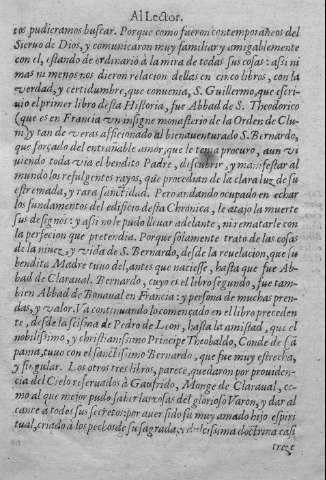 Al Lector.
tos pudieramos buscar. Porque como fueron contemporaneos del
Sieruo de Dios, y comunicaron muy familiar y amigablemente
con el, estando de ordinario a la mira de todas sus cosas: assi ni
mas ni menos nos dieron relacion dellas en cinco libros, con la
verdad, y certidumbre, que conuenia, S. Guillermo, que escri
uio el primer libro desta Historia, fue Abbad de S. Theodorico
(que es en Francia vn insigne monasterio de la Orden de Clu-
ni) y tan de veras afficionado al bienauenturado S. Bernardo,
que forçado del entrañable amor, que le tema procuro, aun vi
uiendo toda via el bendito Padre, discubrir, y manifestar al
mundo los refulgentes rayos, que procedian de la clara luz de su
estremada, y rara sanctidad. Pero andando ocupado en echar
los fundamentos del edificio desta Chronica, le atajo la muerte
sus desiguos: y assi no le pudo lleuar adelante, ni rematarle con
la perfecion que pretendia. Porque solamente trato de las cosas
de la niñez, y vida de S. Bernardo, desde la reuelacion, que su
bendita Madre tuuo del, antes que naciesse, hasta que fue Ab-
bad de Claraual. Bernardo, cuyo es el libro segundo, fue tam-
bien Abbad de Bonaual en Francia: y persona de muchas pren-
das, y valor. Va continuando lo començado en el libro preceden
te, desde la scisma de Pedro de Leon, hasta la amistad, que el
nobilissimo, y christianissimo Principe Theobaldo, Conde de Cā
pania, tuuo con el sanctissimo Bernardo, que fue muy estrecha,
y singular. Los otros tres libros, parece, quedaron por prouiden-
cia del Cielo reseruados à Gaufrido, Monge de Claraual, co-
mo al que mejor pudo saber las cosas del glorioso Varon, y dar al
cance a todos sus secretos: por auer sido su muy amado hijo espiri
tual, criado à los pechos de su sagrada, y dulcissima doctrina casi
treze